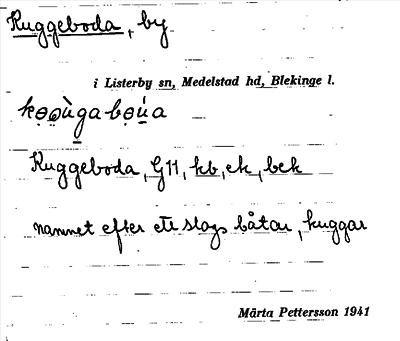 Kuggeboda, by
i Listerby sn, Medelstad hd, Blekinge l.
Kuggeboda, G11, kb, ek, bek
namnet efter ett slags båtar, kuggar
Märta Pettersson 1941